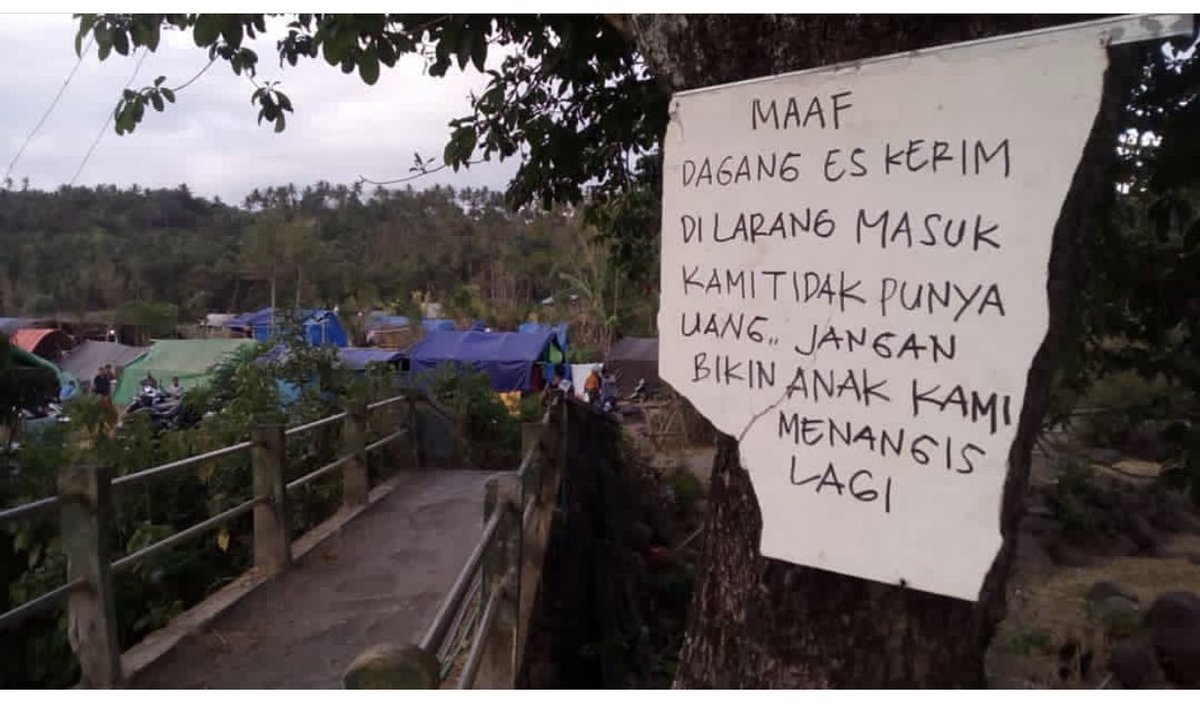 MAAF
DAGANG ES KERIM
DI LARANG MASUK
KAMI TIDAK PUNYA
UANG.. JANGAN
BIKIN ANAK KAMI
MENANGIS
LAGI